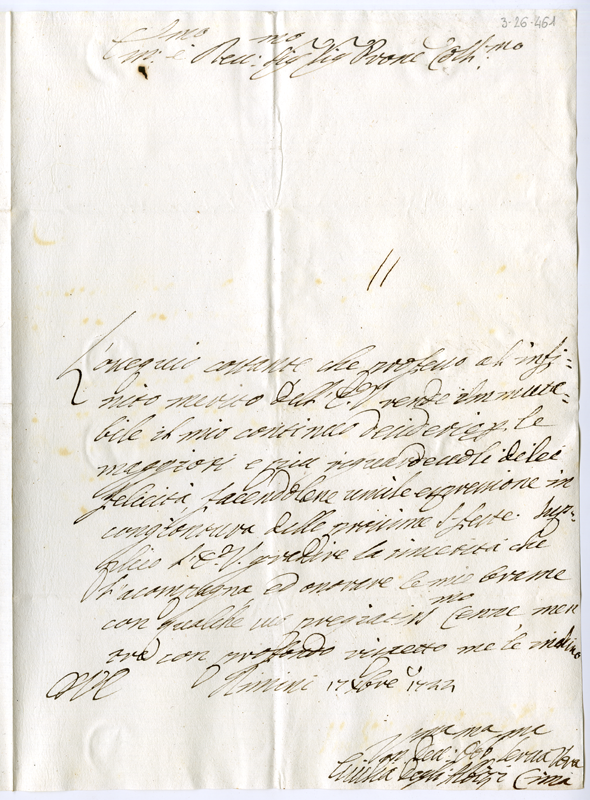 3-26-461
Em.mo e Rev.mo Sig.r Sig.r Prone Col.mo
L'ossequio costante che professo al infi=
nito merito dell'E.V. rende immuta=
bile il mio continuo desiderio p. le
maggiori e più riguardevoli di lei
felicità, facendolene umile espressione in
congiontura delle prossime S. feste. Sup=
plico l'E.V. gradire la sincerità che
l'acompagna ed onorare le mie brame
con qualche suo pregiatis.mo cenno men
tre con profondo rispetto me le inchino
Rimini 17 Xbre 1722
Dev. Serva Vera
Giulia degli Cima